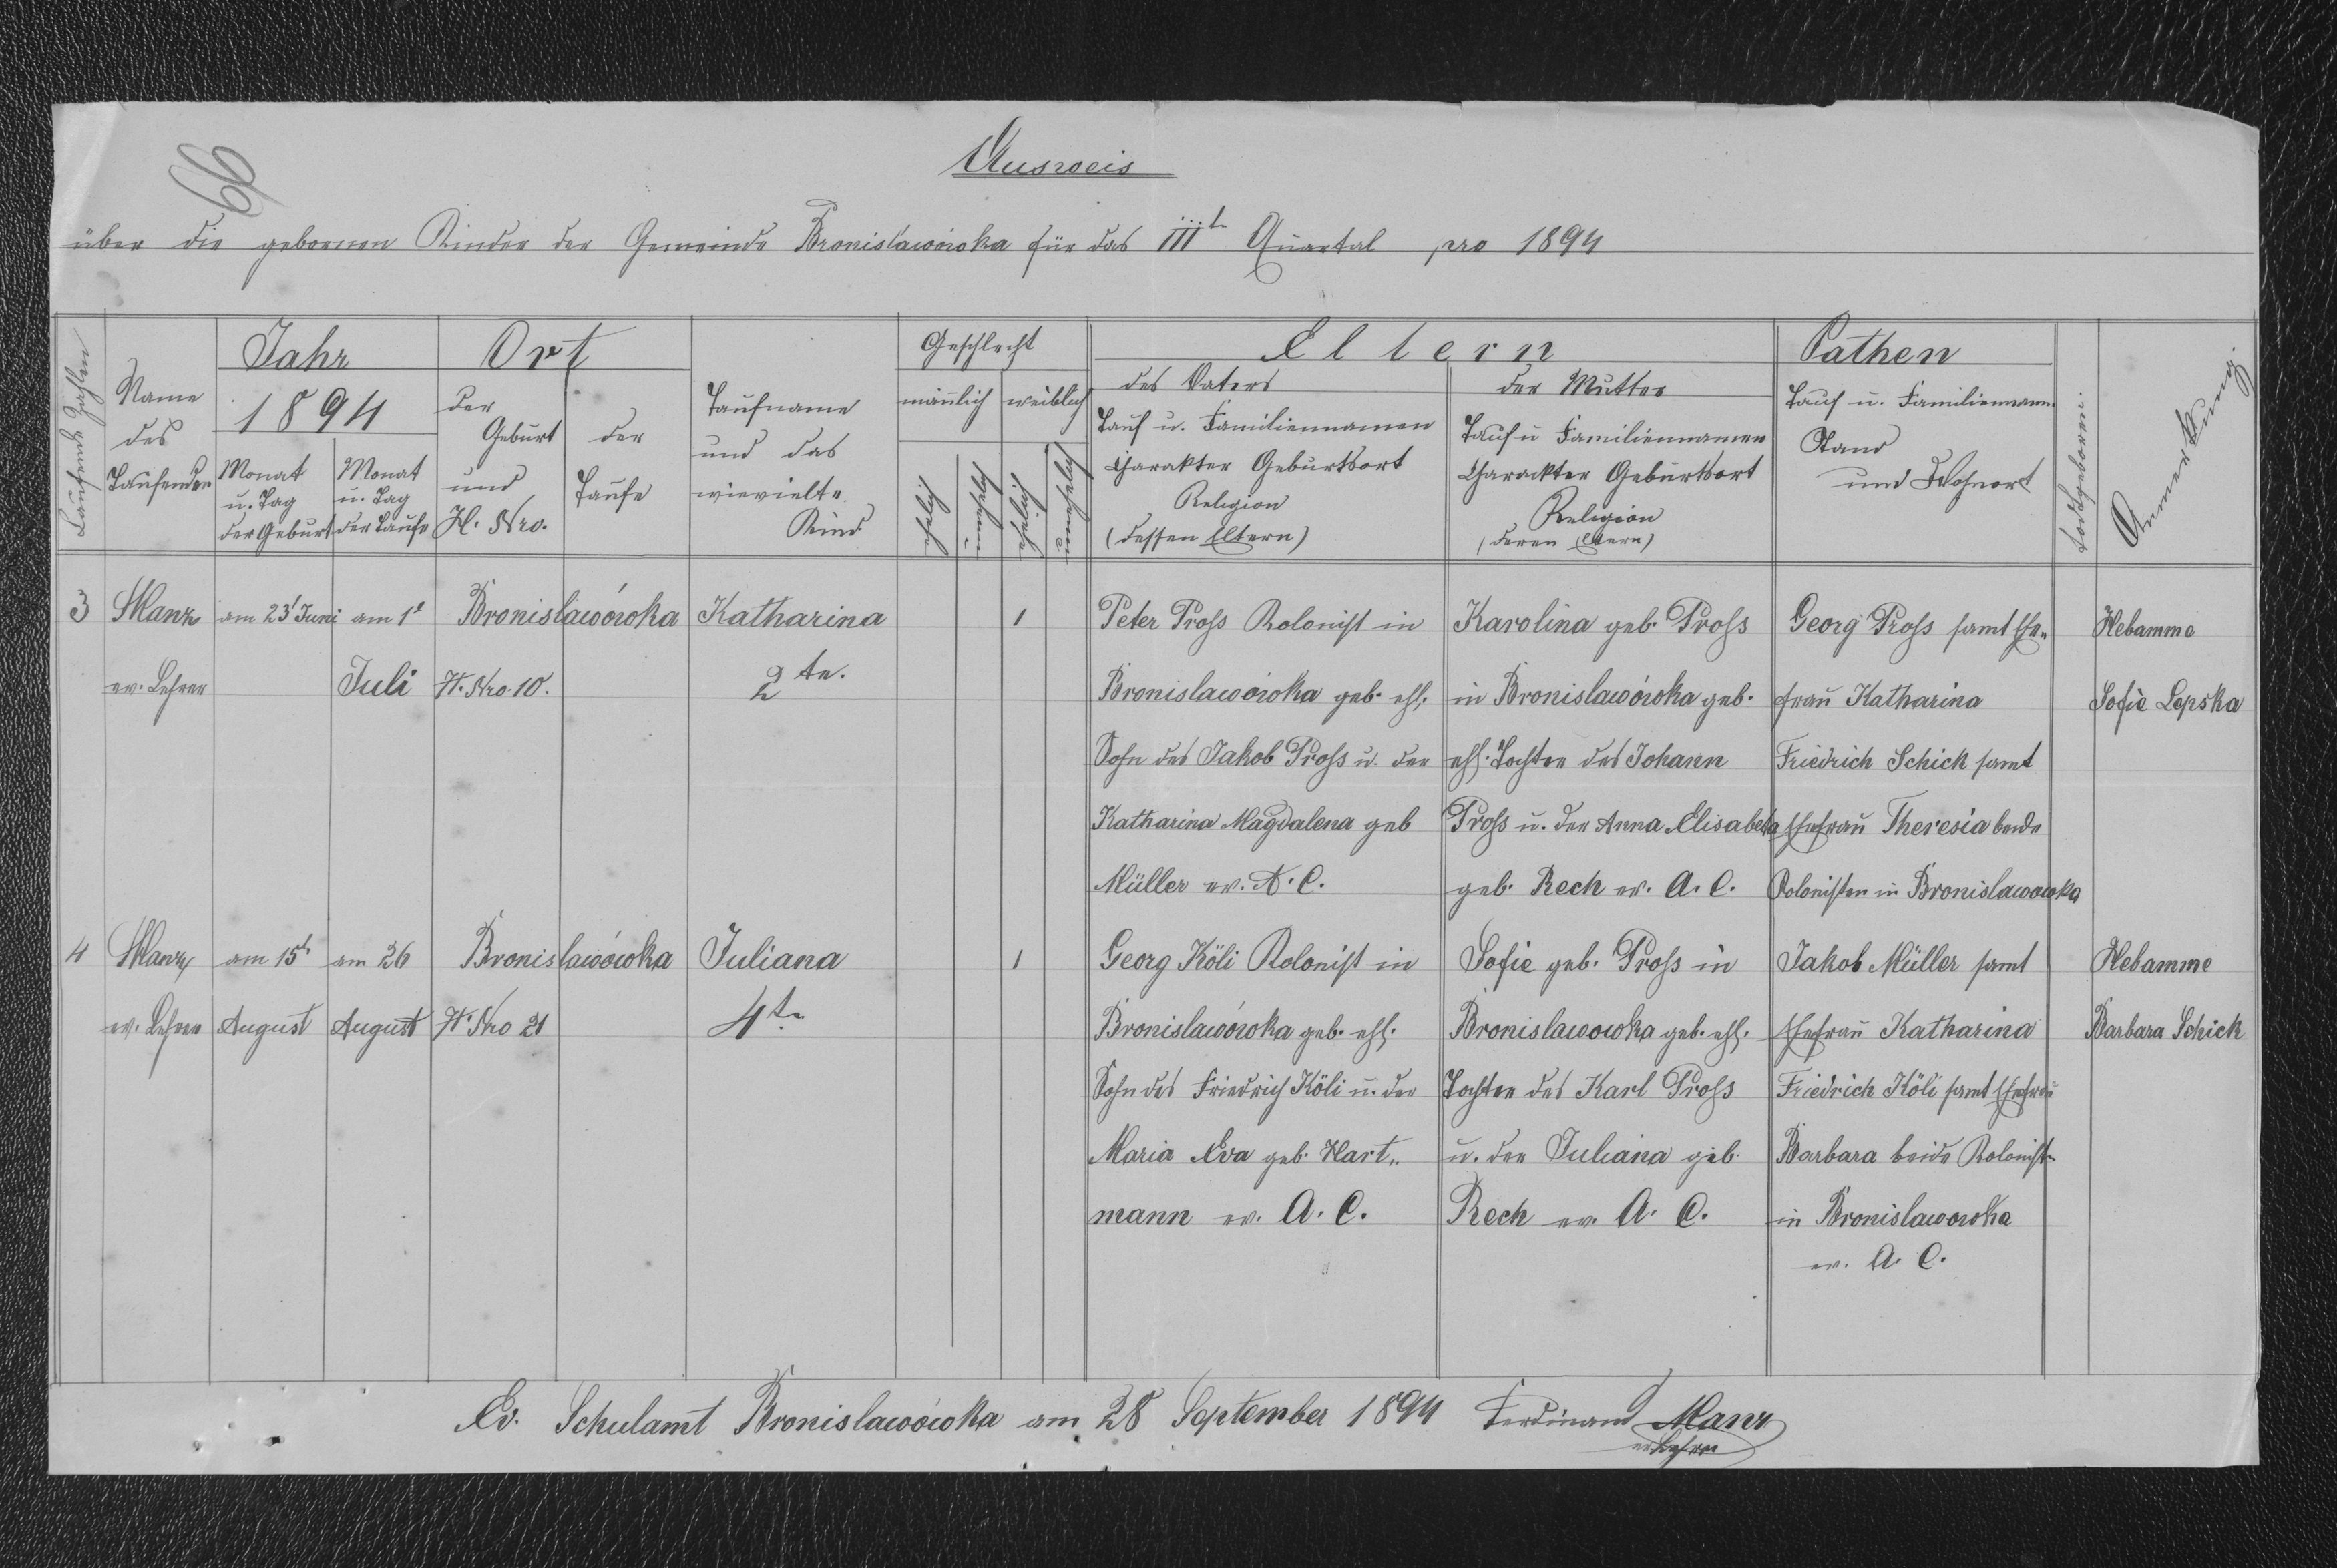 66
Ausweis
über die gebornen Kinder der Gemeinde Bronisławówka für das IIIt Quartal pro 1894
Laufende Zahlen
Name
des
Taufenden
Jahr
1894
Monat
u. Tag
der Geburt
Monat
u. Tag
der Taufe
Ort
der
Geburt
und
H. Nro.
der
Taufe
Taufname
und das
wievielte
Kind
Geschlecht
männlich
weiblich
ehelich
unehelich
ehelich
unehelich
Eltern
des Vaters
Tauf u. Familiennamen
Charakter Geburtsort
Religion
(dessen Eltern)
der Mutter
Tauf u Familiennamen
Charackter Geburtsort
Religion
(deren Eltern)
Pathen
Tauf u. Familiennam.
Stand
und Wohnort
todtgeboren.
Anmerkung.
3 Manz am 23t Juni am 1t Bronisławówka Katharina 1 Peter Pross Kolonist in Karolina geb. Pross Georg Pross samt Ehe„ Hebamme
ev. Lehrer Juli H. Nro. 10. 2te. Bronislawówka geb. ehl. in Bronislawówka geb. frau Katharina Sofie Lepska
Sohn des Jakob Pross u. der ehl. Tochter des Johann Friedrich Schick samt
Katharina Magdalena geb Pross u. der Anna Elisabeta Ehefrau Theresia beide
Müller ev. A. C. geb. Rech ev. A. C. Kolonisten in Bronislawowka
4 Manz am 15t am 26 Bronislawówka Juliana 1 Georg Köli Kolonist in Sofie geb. Pross in Jakob Müller samt Hebamme
ev. Lehrer August August H. Nro 21 4te Bronislawówka geb. ehl. Bronislawowka geb. ehl. Ehefrau Katharina Barbara Schick
Sohn des Friedrich Köli u. der Tochter des Karl Pross Friedrich Köli samt Ehefrau
Maria Eva geb. Hart„ u. der Juliana geb. Barbara beide Kolonist.
mann ev. A. C. Rech ev. A. C. in Bronislawowka
ev. A. C.
Ev. Schulamt Bronislawówka am 28 September 1894 Ferdinand Manz
ev Lehrer